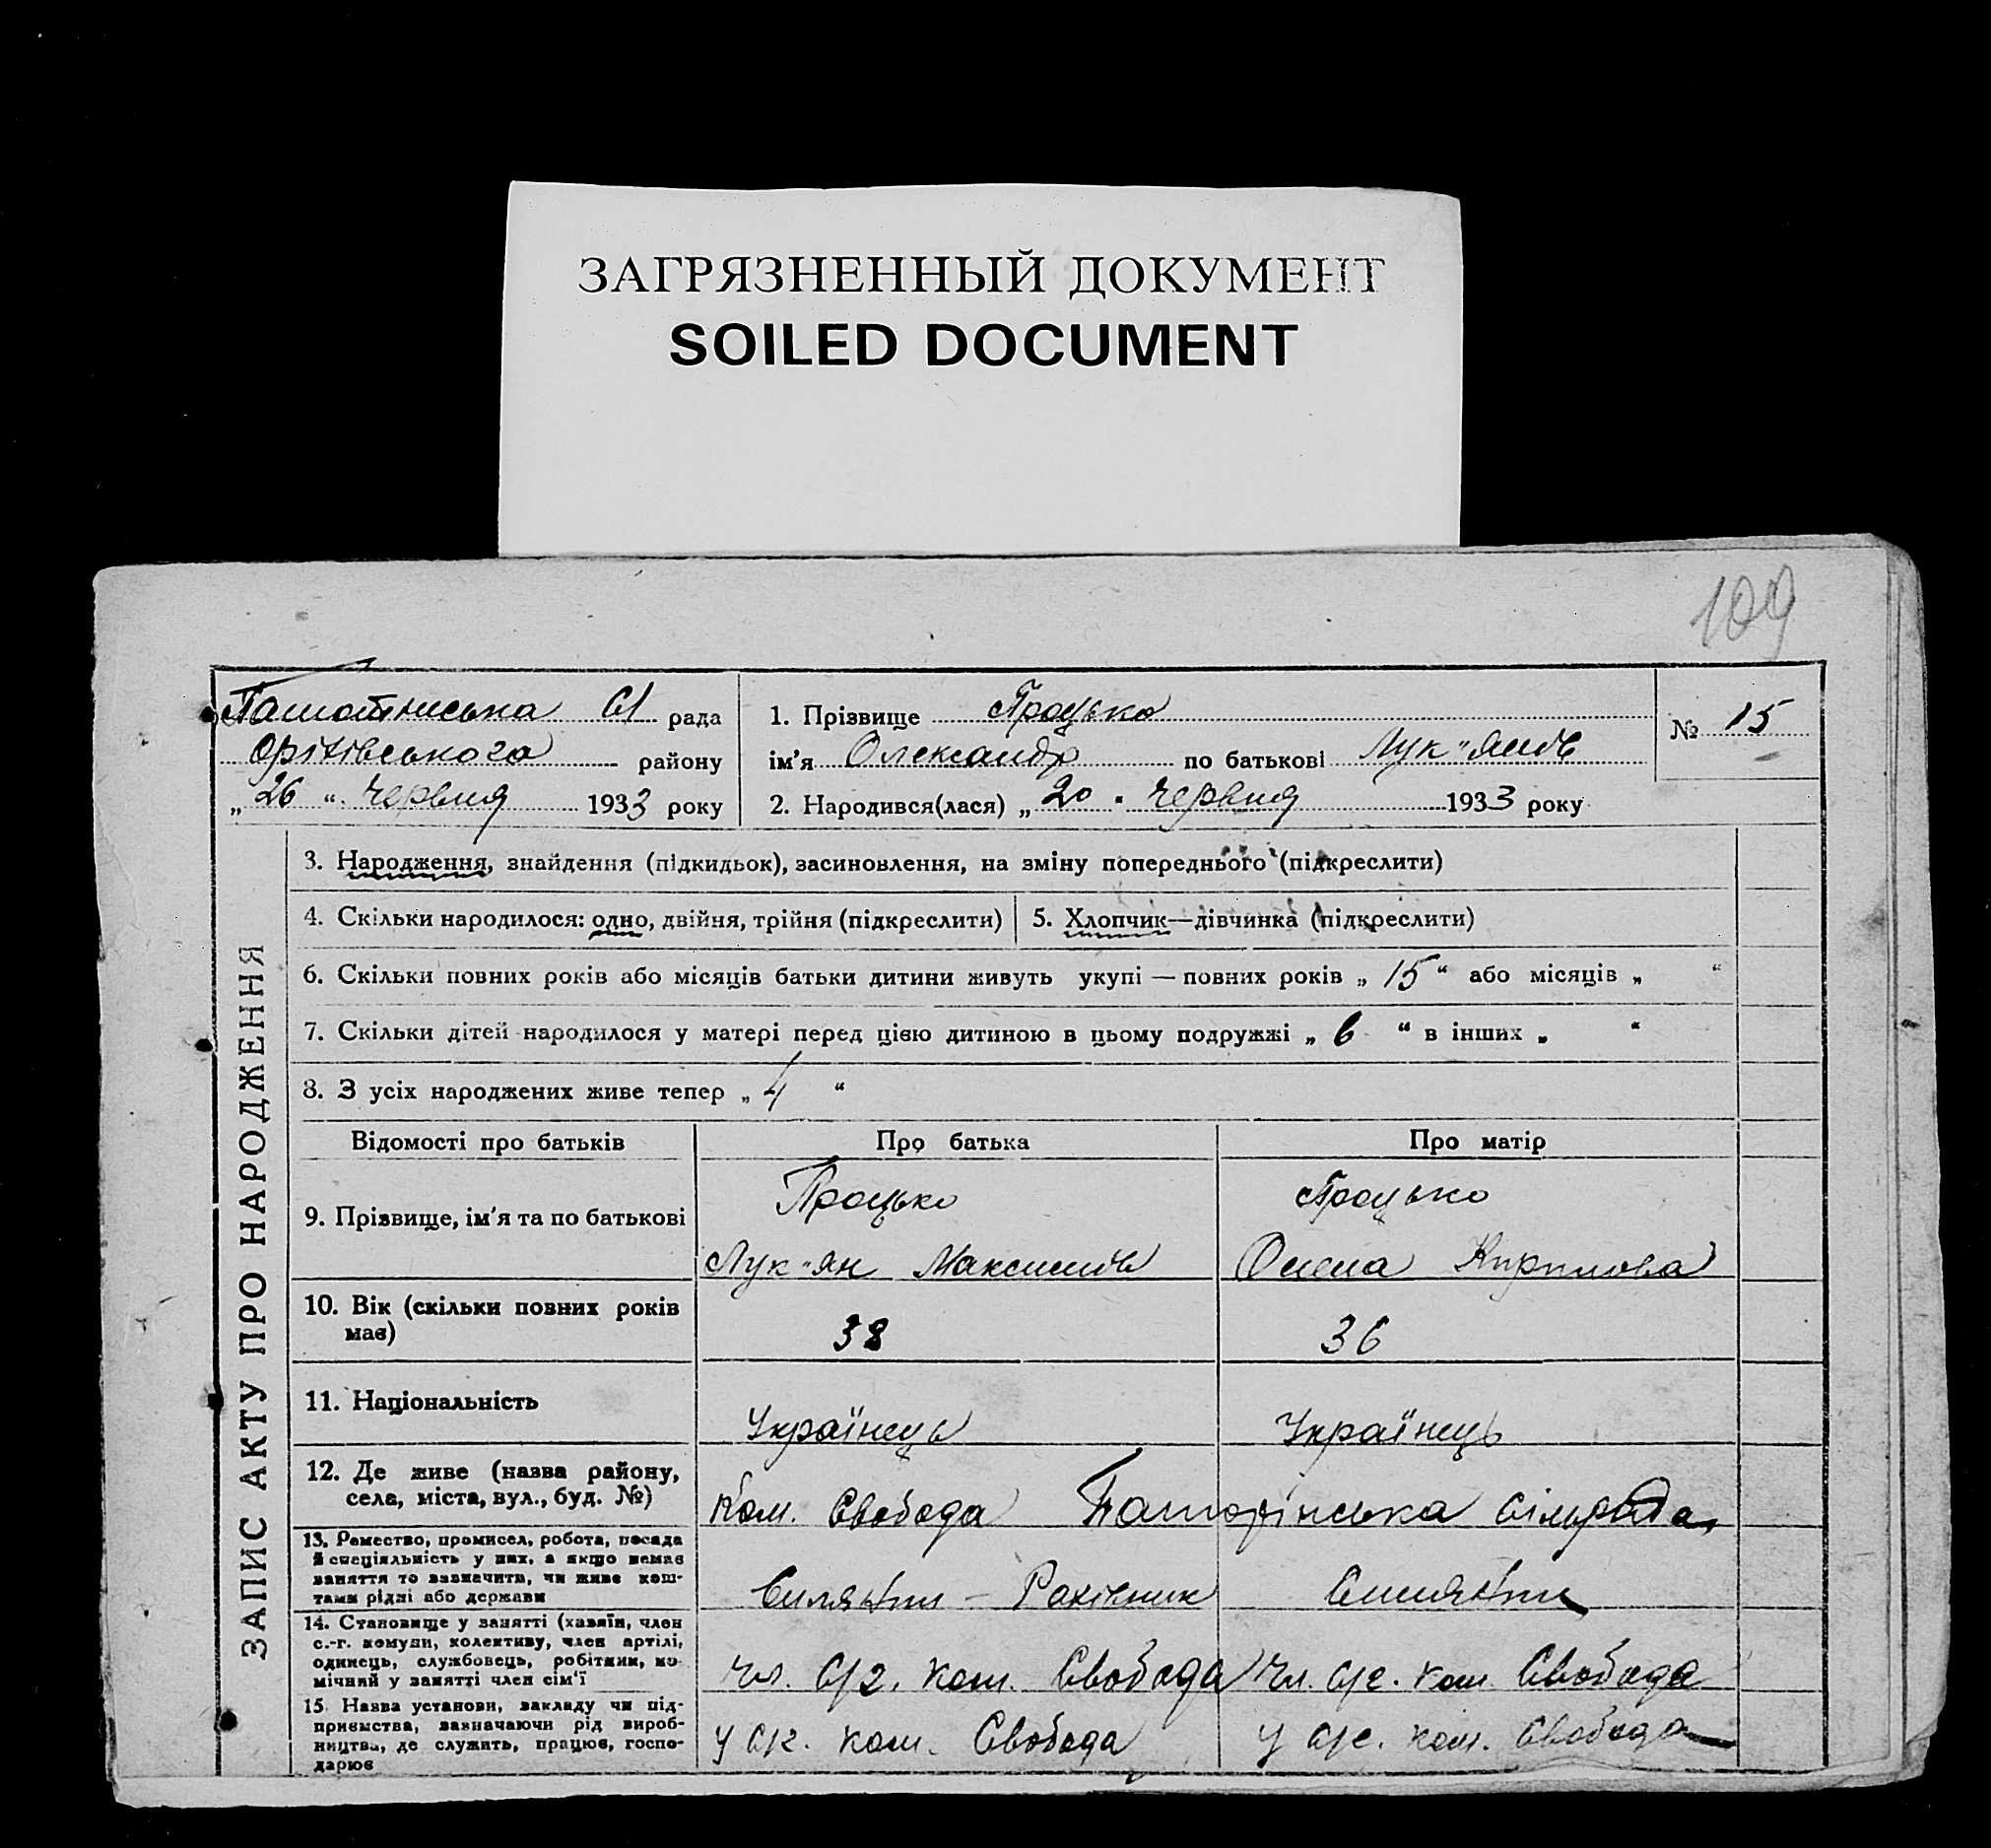 ЗАГРЯЗНЕННЫЙ ДОКУМЕНТ
SOILED DOCUMENT
109
рада
1. Прізвище Процько
№ 15
району
ім'я Олександр по батькові Лук"янів
„26“ Червня 1933 року
2. Народився(лася) „20“ Червня 1933 року
ЗАПИС АКТУ ПРО НАРОДЖЕННЯ
3. Народження, знайдення (підкидьок), засиновлення, на зміну попереднього (підкреслити)
4. Скільки народилося: одно, двійня, трійня (підкреслити)
5. Хлопчик—дівчинка (підкреслити)
6. Скільки повних років або місяців батьки дитини живуть укупі — повних років „15“ або місяців „ “
7. Скільки дітей народилося у матері перед цією дитиною в цьому подружжі „6“ в інших „ “
8. З усіх народжених живе тепер „4“
Відомості про батьків
Про батька
Про матір
9. Прізвище, ім'я та по батькові
Процько
Лук"ян Максимів
Процько
Олена Кирилова
10. Вік (скільки повних років
має)
38
36
11. Національність
Українець
Українець
12. Де живе (назва району,
села, міста, вул., буд. №)
Ком. Свобода сільрада
13. Ремество, промисел, робота, посада
й спеціяльність у них, а якщо немає
заняття то зазначити, чи живе кош-
тами рідні або держави
Рахівник
14. Становище у занятті (хазяїн, член
с.-г. комуни, колективу, член артілі,
одинець, службовець, робітник, по-
мічний у занятті член сім'ї
Чл. с/г. ком. Свобода
Чл. с/г. ком. Свобода
15. Назва установи, закладу чи під-
приємства, зазначаючи рід вироб-
ництва, де служить, працює, госпо-
дарює
у с/г. ком. Свобода
у с/г. ком. Свобода